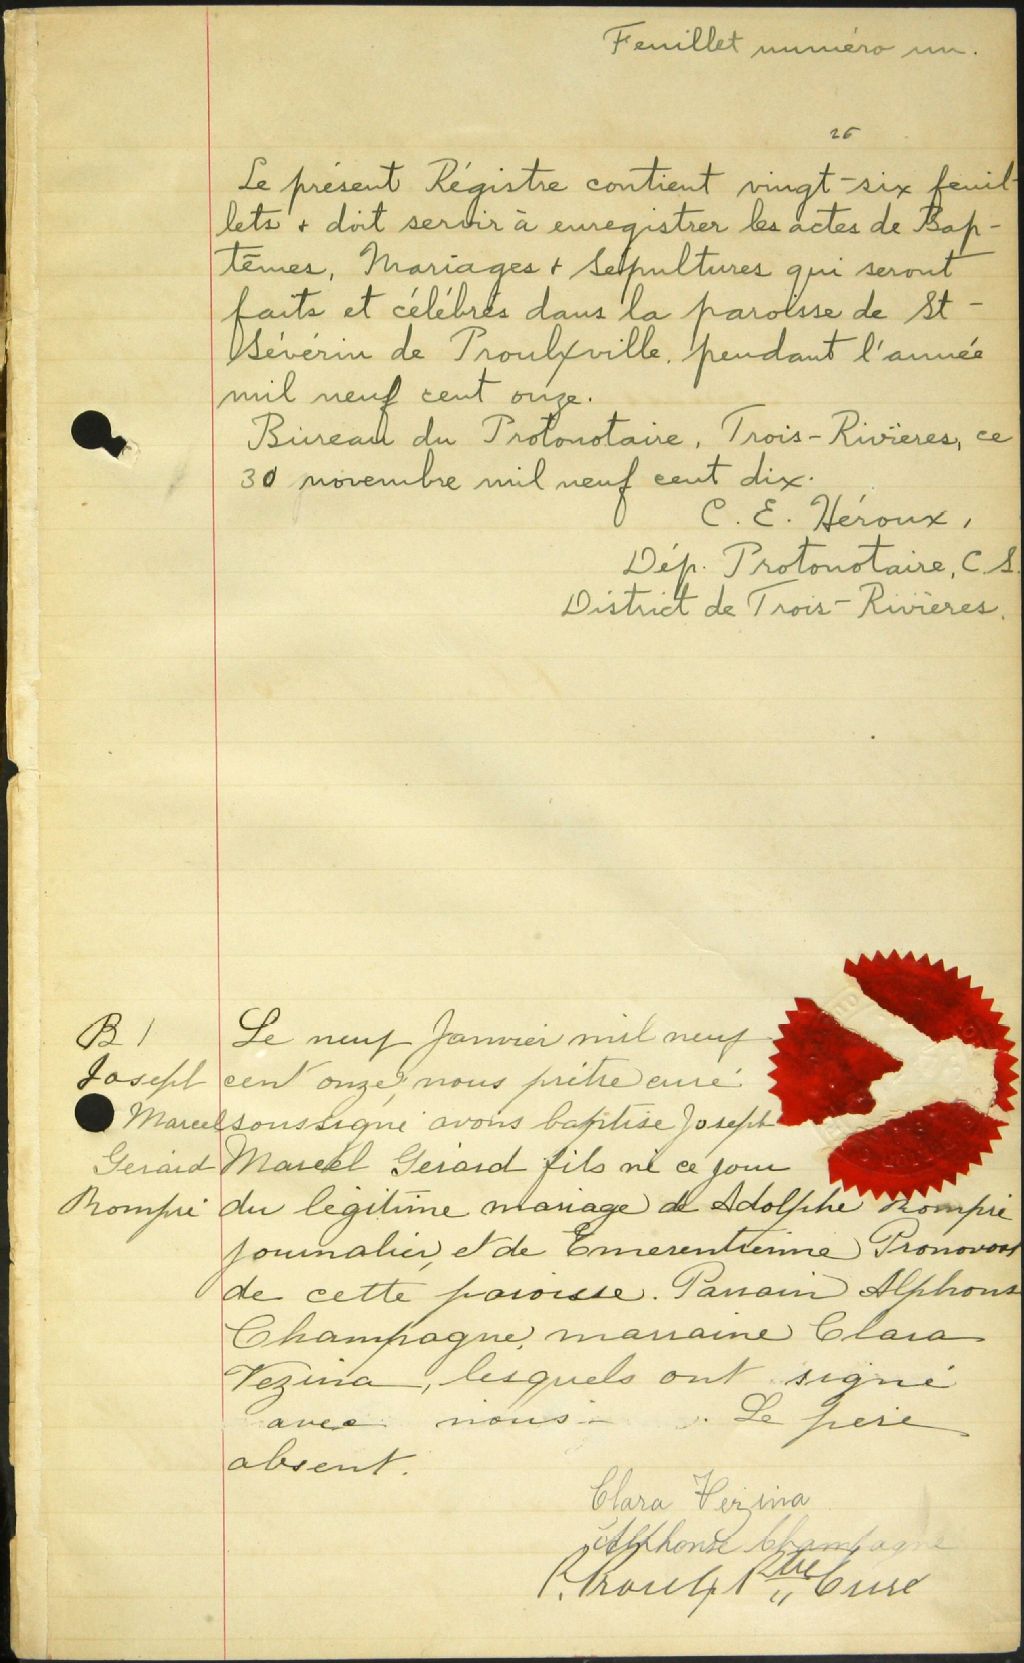 Feuillet numéro un.
26
Le présent Régistre contient vingt-six feuil-
lets & doit servir à enregistrer les actes de Bap-
têmes, Mariages & Sépultures qui seront
faits et célébrés dans la paroisse de St-
Sévérin de Proulxville, pendant l'année
mil neuf cent onze.
Bureau du Protonotaire, Trois-Rivières, ce
30 novembre mil neuf cent dix.
C. E. Héroux,
Dép. Protonotaire, C.S.
District de Trois-Rivières.
B 1
Joseph
Marcel
Gerard
Rompré
Le neuf Janvier mil neuf
cent onze, nous prêtre curé
soussigné avons baptisé Joseph
Marcel Gerard fils né ce jour
du légitime mariage de Adolphe Rompré
journalier, et de Emerentienne Pronovost
de cette paroisse. Parrain Alphonse
Champagne, marraine Clara
Vezina, lesquels ont signé
avec nous. Le père
absent.
Clara Vezina
Alphonse Champagne
P. Proulx Ptre Curé